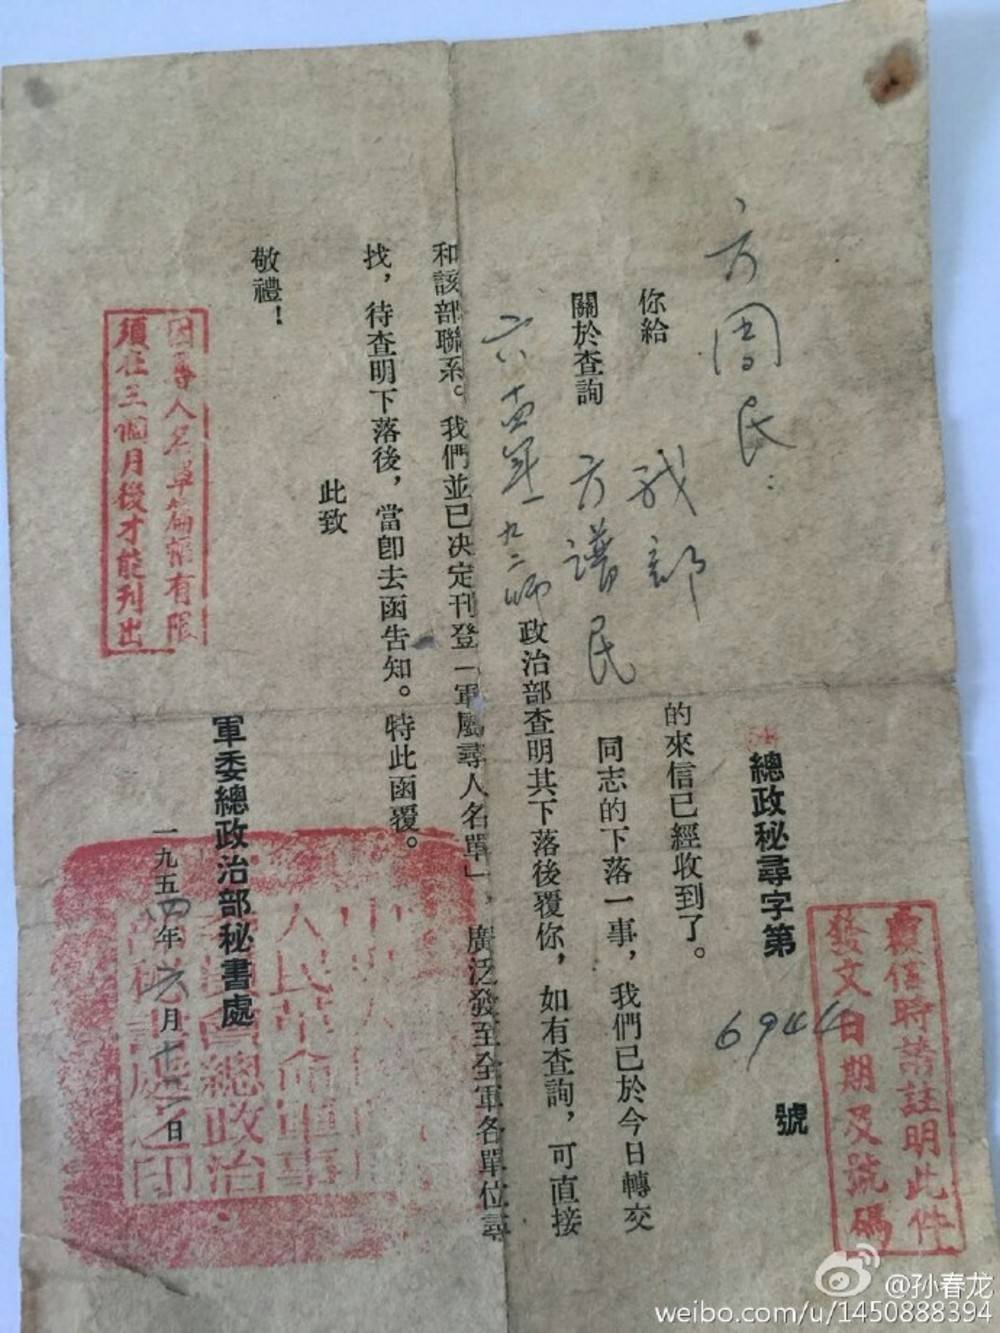 覆信時請註明此件
發文日期及號碼
總政秘尋字第 6944 號
方周民：
你給 我部 的來信已經收到了。
關於查詢 方譜民 同志的下落一事，我們已於今日轉交
六十四軍一九二師政治部查明其下落後覆你，如有查詢，可直接
和該部聯系。我們並已決定刊登「軍屬尋人名單」，廣泛發至全軍各單位尋
找，待查明下落後，當卽去函告知。特此函覆。
此致
敬禮！
軍委總政治部秘書處
一九五四年六月十二日
人民革命軍事
總政治
因尋人名單篇幅有限
須在三個月後才能刊出
@孙春龙
weibo.com/u/1450888394